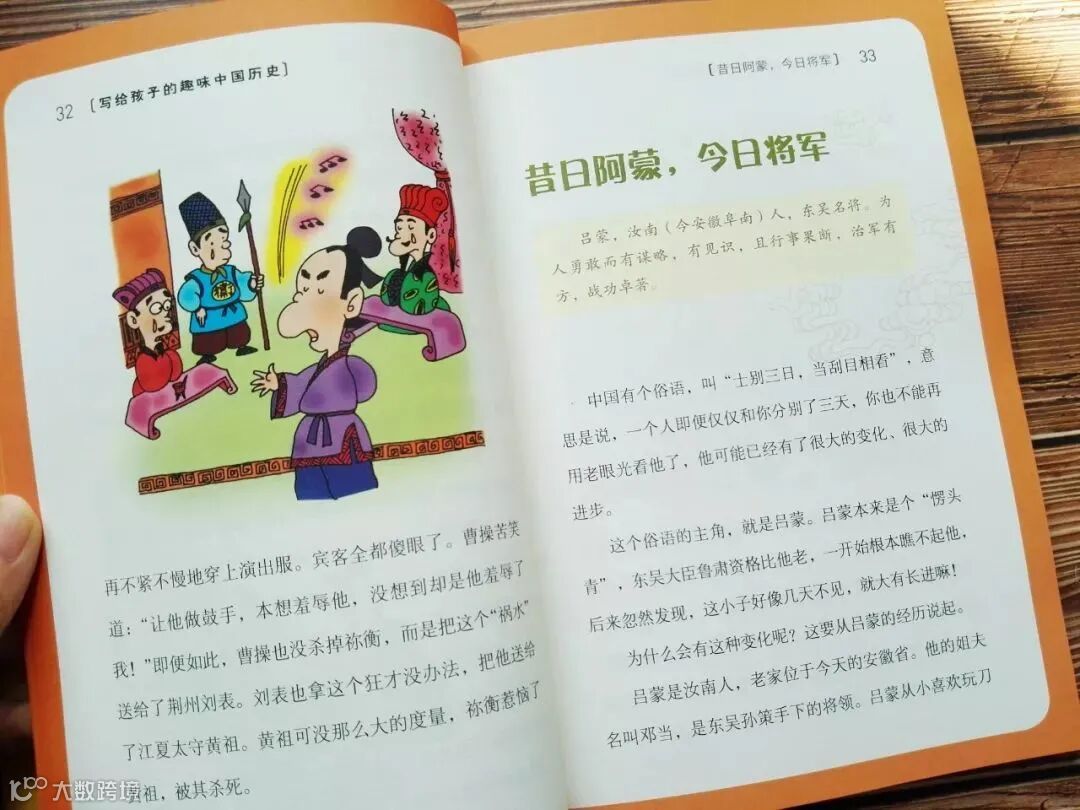 32 [写给孩子的趣味中国历史]
再不紧不慢地穿上演出服。宾客全都傻眼了。曹操苦笑
道：“让他做鼓手，本想羞辱他，没想到却是他羞辱了
我！”即便如此，曹操也没杀掉祢衡，而是把这个“祸水”
送给了荆州刘表。刘表也拿这个狂才没办法，把他送给
了江夏太守黄祖。黄祖可没那么大的度量，祢衡惹恼了
祖，被其杀死。
[昔日阿蒙，今日将军] 33
昔日阿蒙，今日将军
吕蒙，汝南（今安徽阜南）人，东吴名将。为
人勇敢而有谋略，有见识，且行事果断，治军有
方，战功卓著。
中国有个俗语，叫“士别三日，当刮目相看”，意
思是说，一个人即便仅仅和你分别了三天，你也不能再
用老眼光看他了，他可能已经有了很大的变化、很大的
进步。
这个俗语的主角，就是吕蒙。吕蒙本来是个“愣头
青”，东吴大臣鲁肃资格比他老，一开始根本瞧不起他，
后来忽然发现，这小子好像几天不见，就大有长进嘛！
为什么会有这种变化呢？这要从吕蒙的经历说起。
吕蒙是汝南人，老家位于今天的安徽省。他的姐夫
名叫邓当，是东吴孙策手下的将领。吕蒙从小喜欢玩刀
大数跨境